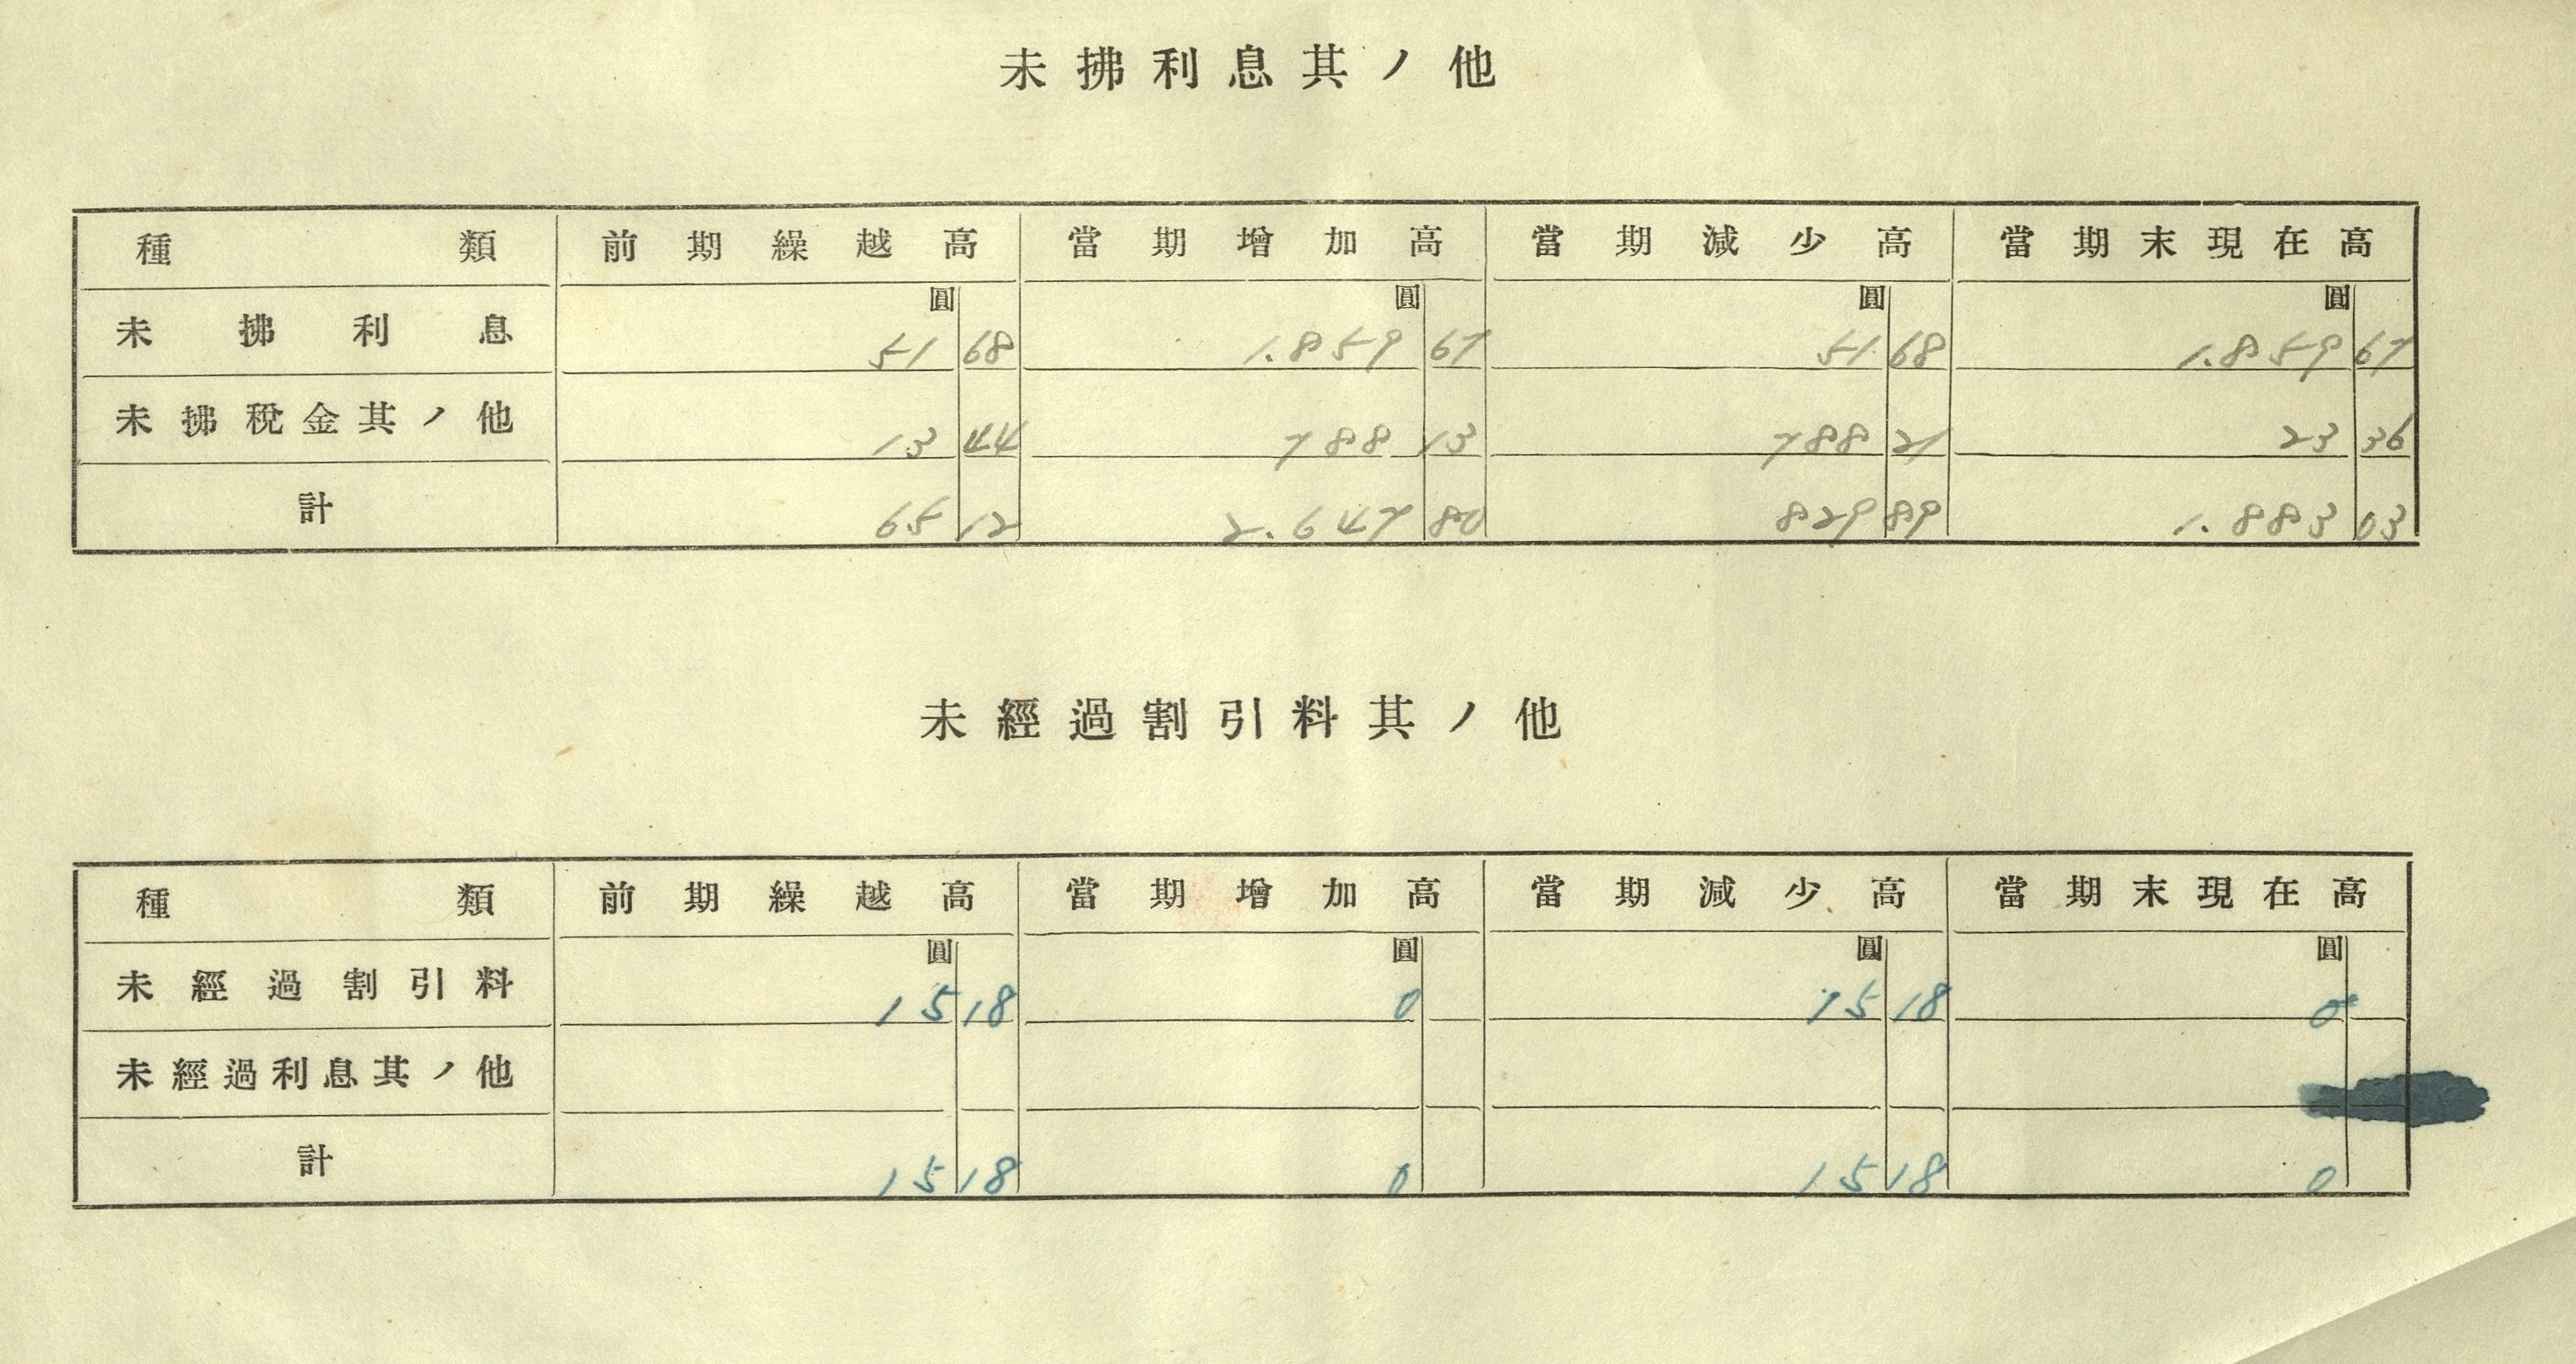 未拂利息其ノ他
種類 前期繰越高 當期增加高 當期減少高 當期末現在高
圓 圓 圓 圓
未拂利息 51 68 1.859 67 51 68 1.859 67
未拂稅金其ノ他 13 44 788 13 788 21 23 36
計 65 12 2.647 80 829 89 1.883 03
未經過割引料其ノ他
種類 前期繰越高 當期增加高 當期減少高 當期末現在高
圓 圓 圓 圓
未經過割引料 15 18 0 15 18 0
未經過利息其ノ他
計 15 18 0 15 18 0